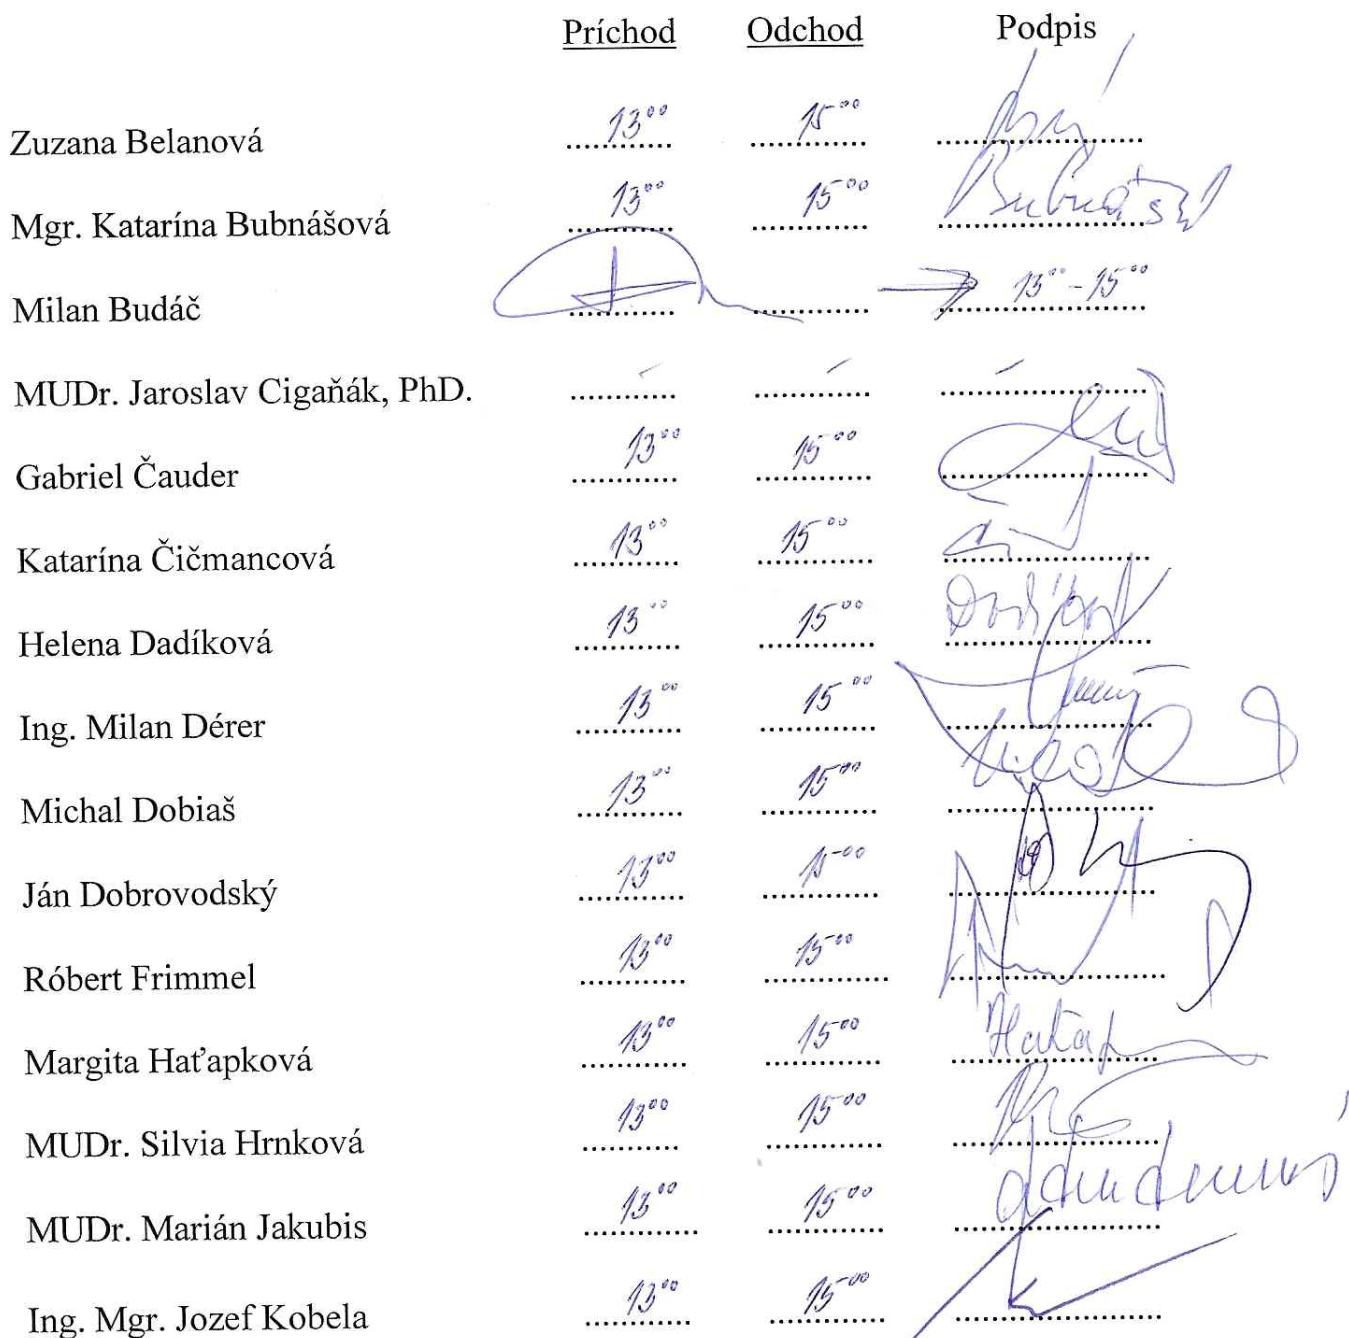 Príchod Odchod Podpis
Zuzana Belanová 13⁰⁰ 15⁰⁰
Mgr. Katarína Bubnášová 13⁰⁰ 15⁰⁰
Milan Budáč 13⁰⁰ - 15⁰⁰
MUDr. Jaroslav Cigaňák, PhD. - - -
Gabriel Čauder 13⁰⁰ 15⁰⁰
Katarína Čičmancová 13⁰⁰ 15⁰⁰
Helena Dadíková 13⁰⁰ 15⁰⁰
Ing. Milan Dérer 13⁰⁰ 15⁰⁰
Michal Dobiaš 13⁰⁰ 15⁰⁰
Ján Dobrovodský 13⁰⁰ 15⁰⁰
Róbert Frimmel 13⁰⁰ 15⁰⁰
Margita Haťapková 13⁰⁰ 15⁰⁰
MUDr. Silvia Hrnková 13⁰⁰ 15⁰⁰
MUDr. Marián Jakubis 13⁰⁰ 15⁰⁰
Ing. Mgr. Jozef Kobela 13⁰⁰ 15⁰⁰